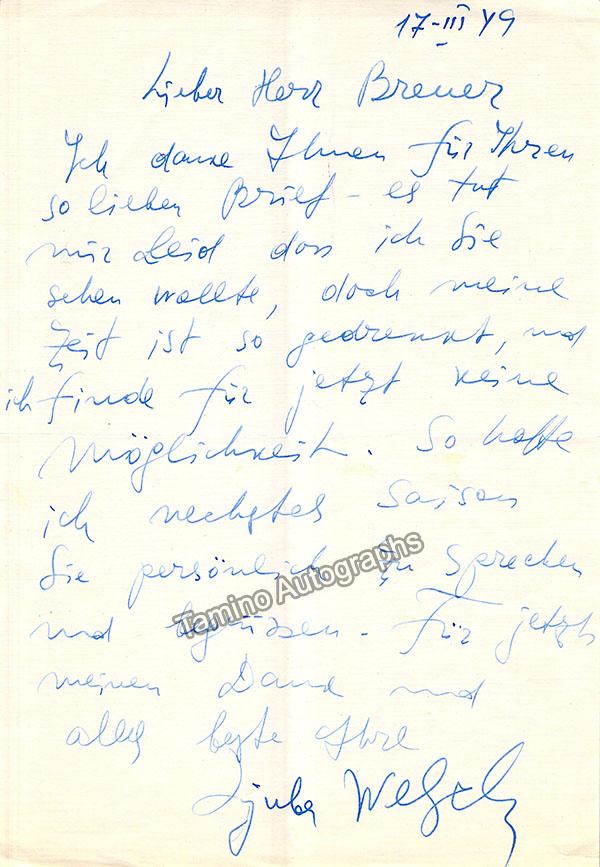 17-III 49
Lieber Herr Breuer
Ich danke Ihnen für Ihren
so lieben Brief - es tut
mir Leid dass ich Sie
sehen wollte, doch meine
Zeit ist so gedrenkt, und
ich finde für jetzt keine
Möglichkeit. So hoffe
ich nechstes Saison
Sie persönlich zu sprechen
Tamino Autographs
und begrüssen. Für jetzt
meinen Dank und
alles beste Ihre
Ljuba Welsch